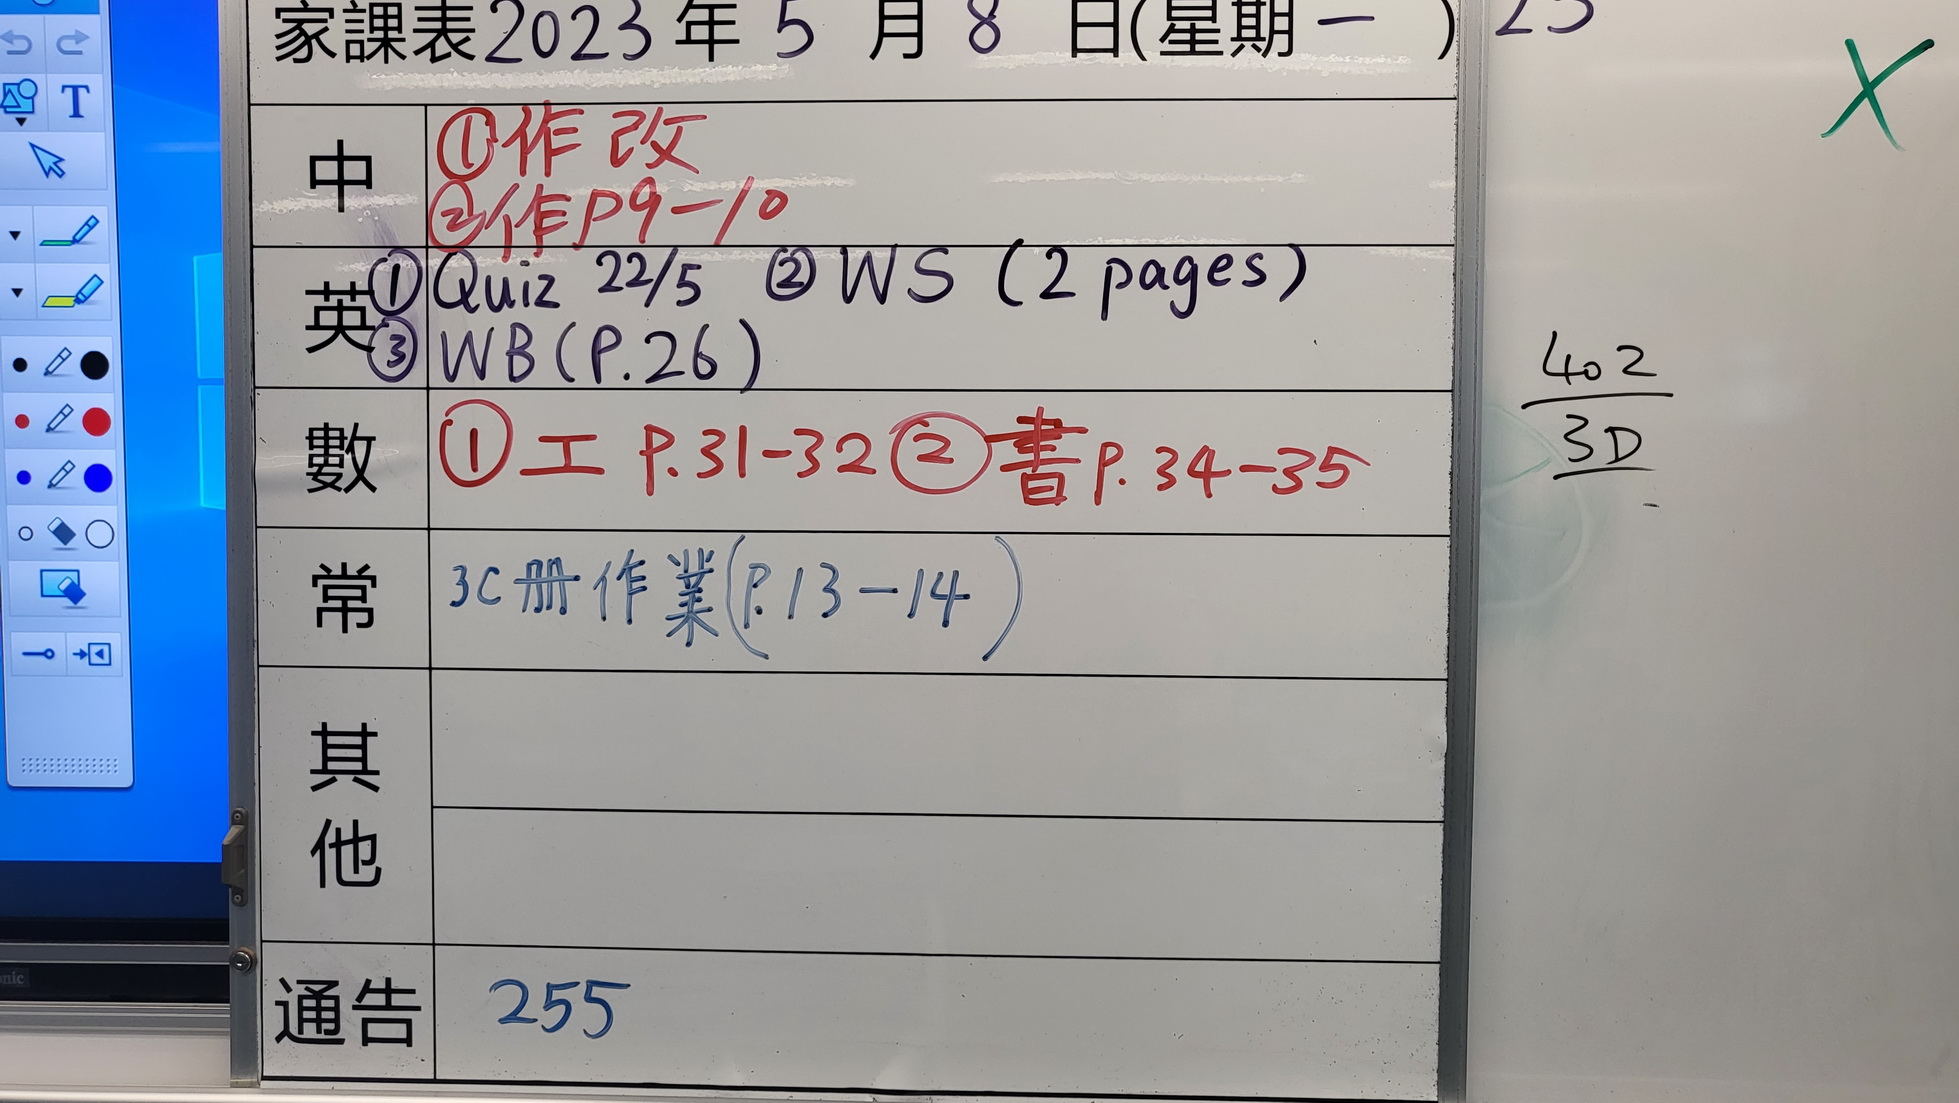 家課表2023年 5 月 8 日(星期一 )
中
①作改
②作P9-10
英
①Quiz 22/5 ②WS (2 pages)
③WB(P.26)
數
①工 P.31-32 ②書P.34-35
常
3C冊作業(P.13-14)
其他
通告
255
X
402
3D
T